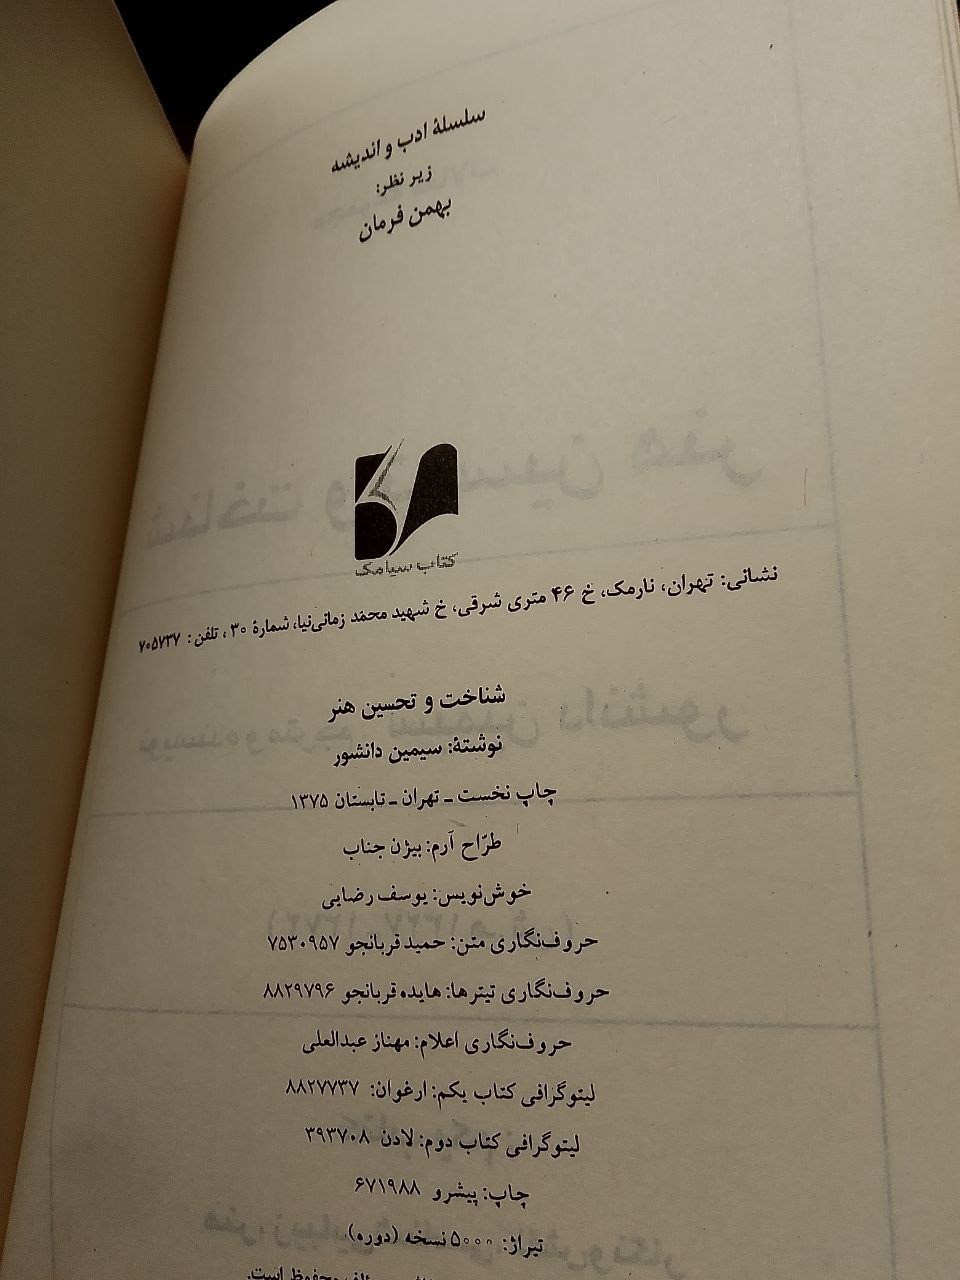 سلسلهٔ ادب و اندیشه
زیر نظر:
بهمن فرمان
کتاب سیامک
نشانی: تهران، نارمک، خ ۴۶ متری شرقی، خ شهید محمّد زمانی‌نیا، شمارهٔ ۳۰، تلفن: ۷۰۵۷۳۷
شناخت و تحسین هنر
نوشتهٔ: سیمین دانشور
چاپ نخست ـ تهران ـ تابستان ۱۳۷۵
طرّاح آرم: بیژن جناب
خوش‌نویس: یوسف رضایی
حروف‌نگاری متن: حمید قربانجو ۷۵۳۰۹۵۷
حروف‌نگاری تیترها: هایده قربانجو ۸۸۲۹۷۹۶
حروف‌نگاری اعلام: مهناز عبدالعلی
لیتوگرافی کتاب یکم: ارغوان: ۸۸۲۷۷۳۷
لیتوگرافی کتاب دوم: لادن ۳۹۳۷۰۸
چاپ: پیشرو ۶۷۱۹۸۸
تیراژ: ۵۰۰۰ نسخه (دوره)
محفوظ است.